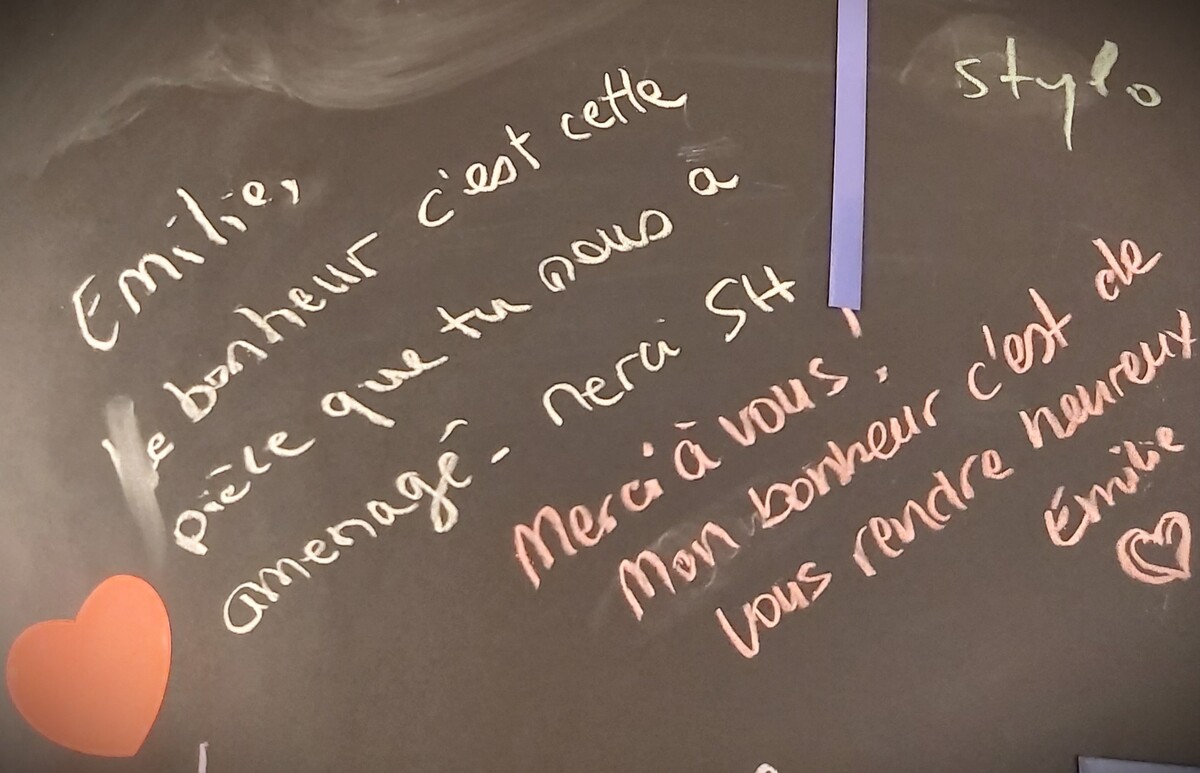 Emilie,
le bonheur c'est cette
pièce que tu nous a
amenagé - merci SH
stylo
Merci à vous!
Mon bonheur c'est de
vous rendre heureux
Émilie